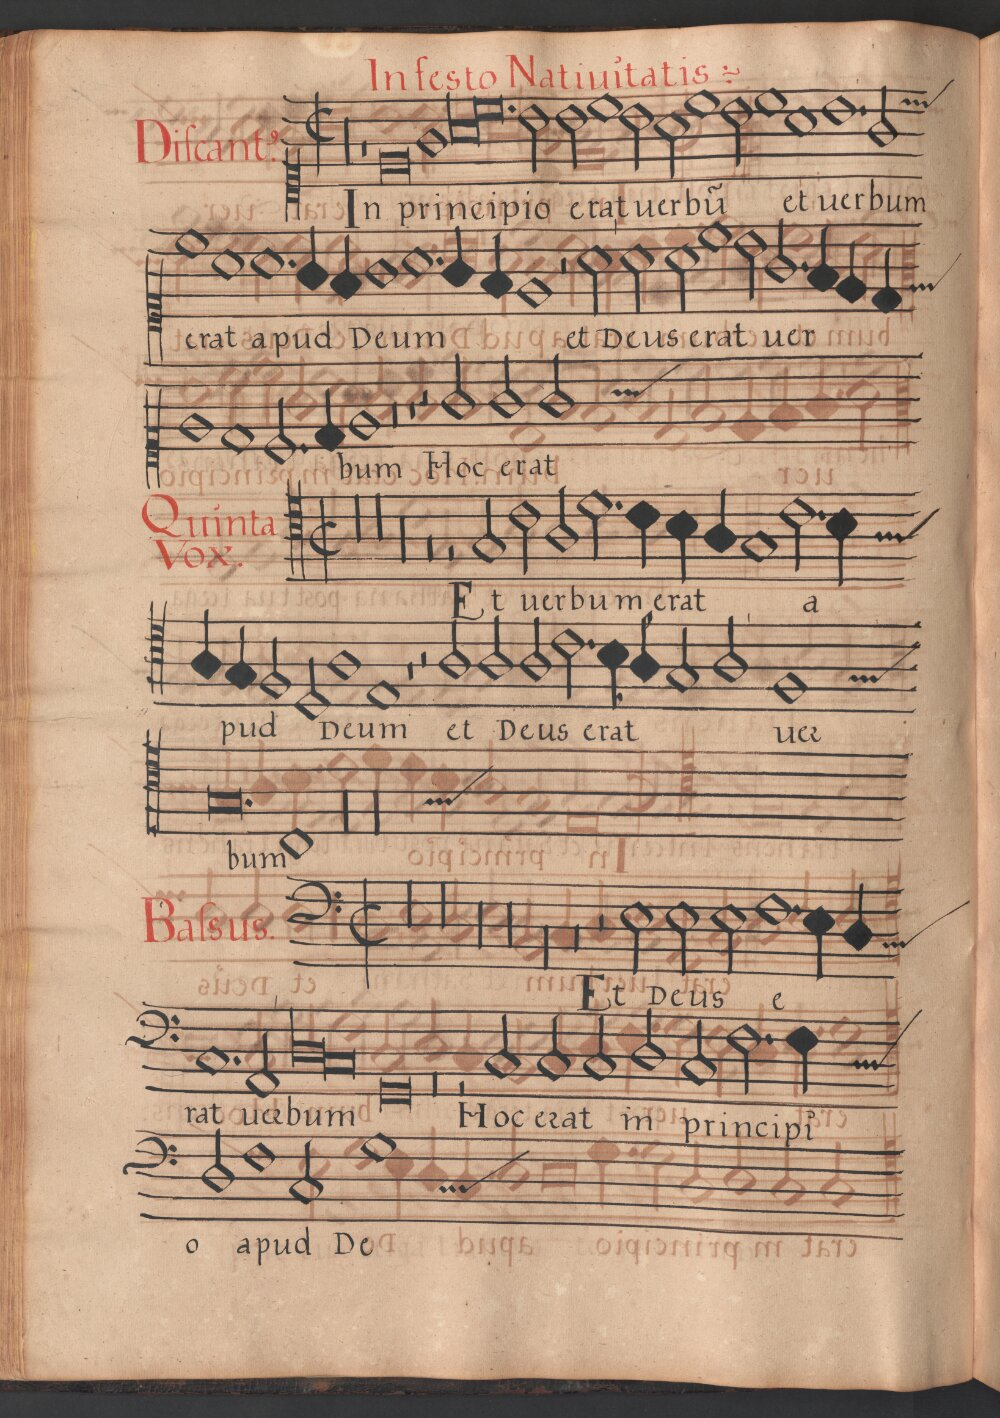 In festo Natiuitatis
Discant9.
In principio erat uerbũ et uerbum
erat apud Deum et Deus erat uer
bum Hoc erat
Quinta
Vox.
Et uerbum erat a
pud Deum et Deus erat uer
bum
Bassus.
Et Deus e
rat uerbum Hoc erat in principi
o apud De